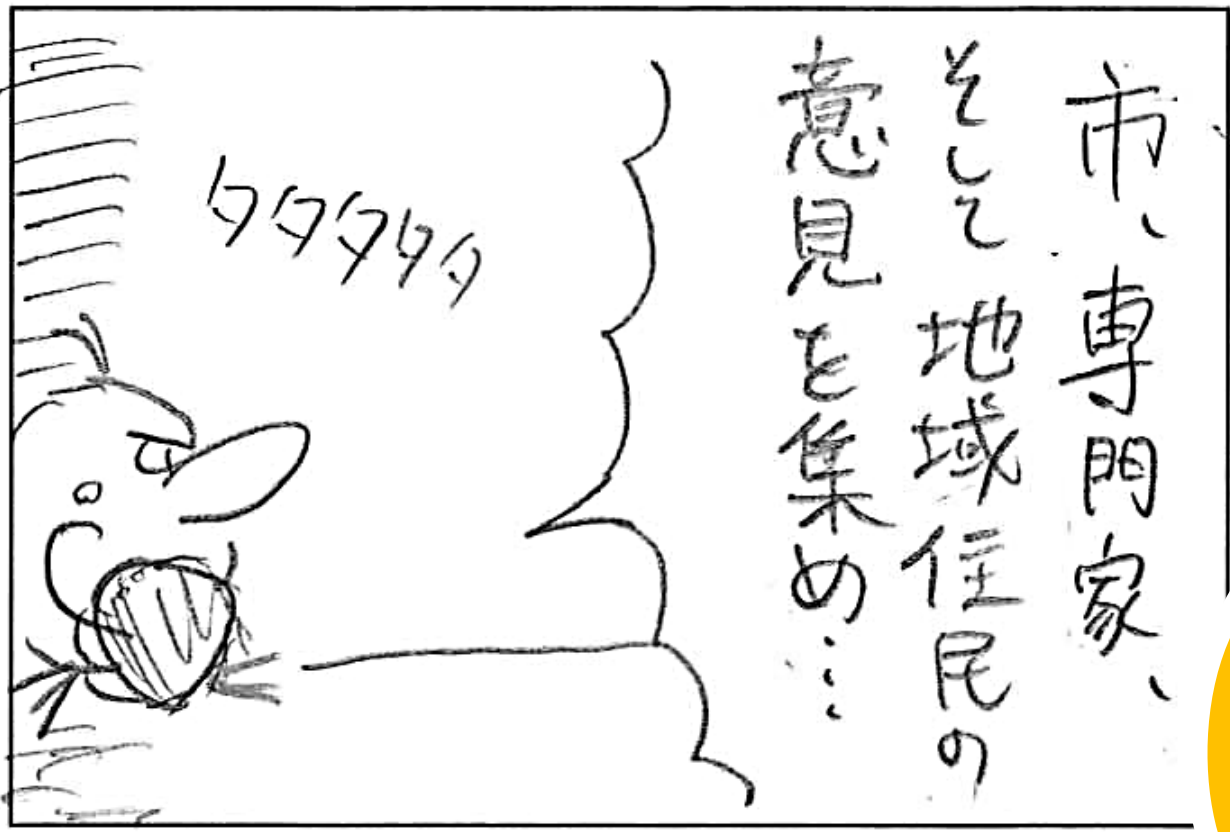 市、専門家、
そして地域住民の
意見を集め…
タタタタタ